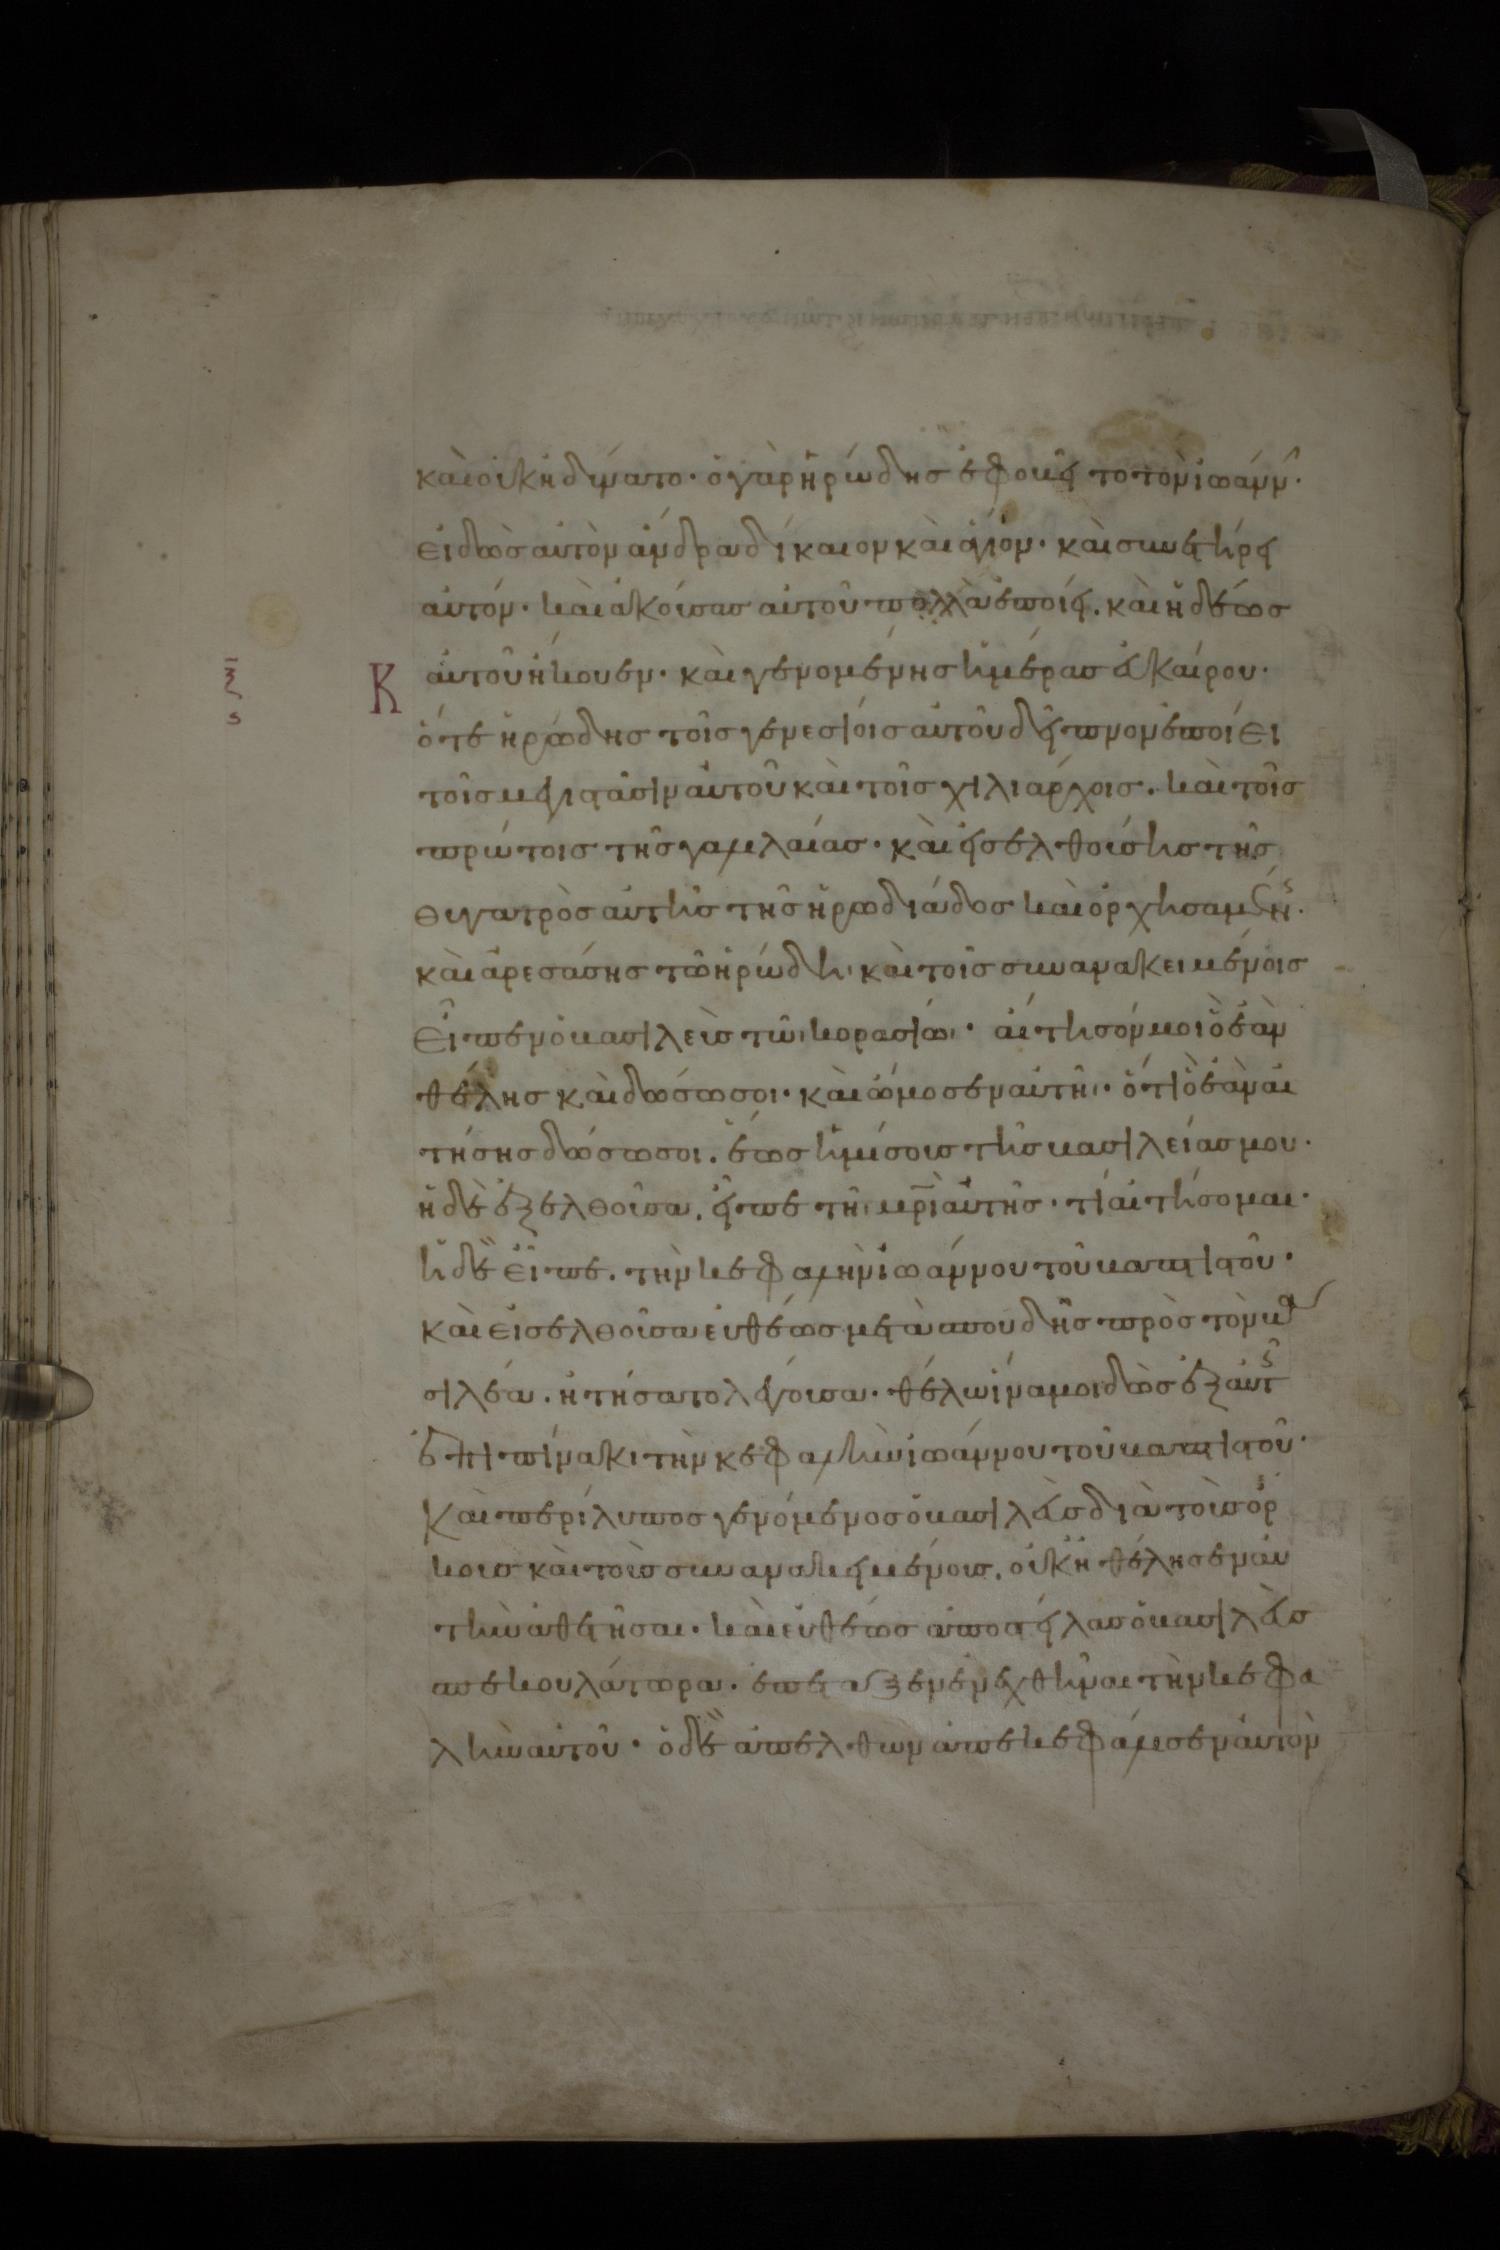 καὶ οὐκ ἠδύνατο· ὁ γὰρ ἡρώδης ἐφοβεῖτο τὸν ἰωάνν̑·
εἰδὼς αὐτὸν ἄνδρα δίκαιον καὶ ἅγιον· καὶ συνετήρει
αὐτόν· καὶ ἀκούσας αὐτοῦ πολλὰ ἐποίει. καὶ ἡδέως
ξ̅
ς
Κ αὐτοῦ ἤκουεν· καὶ γενομένης ἡμέρας εὐκαίρου·
ὅτε ἡρώδης τοῖς γενεσίοις αὐτοῦ δεῖπνον ἐποίει
τοῖς μεγιστᾶσιν αὐτοῦ καὶ τοῖς χιλιάρχοις. καὶ τοῖς
πρώτοις τῆς γαλιλαίας· καὶ εἰσελθούσης τῆς
θυγατρὸς αὐτῆς τῆς ἡρωδιάδος καὶ ὀρχησαμένης·
καὶ ἀρεσάσης τῶ ἡρώδη· καὶ τοῖς συνανακειμένοις
εἶπεν ὁ βασιλεὺς τῶι κορασίωι· αἴτησόν μοι ὃ ἐὰν
θέλης καὶ δώσω σοι· καὶ ὤμοσεν αὐτῆι· ὅτι ὃ ἐὰν αἰ
τήσης δώσω σοι. ἕως ἡμίσους τῆς βασιλείας μου·
ἡ δὲ ἐξελθοῦσα. εἶπε τῆι μρ̅ὶ αὐτῆς· τί αἰτήσομαι·
ἡ δὲ εἶπε. τὴν κεφαλὴν ἰωάννου τοῦ βαπτιστοῦ·
καὶ εἰσελθοῦσα εὐθέως μετὰ σπουδῆς πρὸς τὸν βα
σιλέα. ἠτήσατο λέγουσα· θέλω ἵνα μοι δῶς ἐξ αὐτῆς
ἐπὶ πίνακι τὴν κεφαλὴν ἰωάννου τοῦ βαπτιστοῦ·
καὶ περίλυπος γενόμενος ὁ βασιλεὺς διὰ τοὺς ὅρ
κους καὶ τοὺς συνανακειμένους. οὐκ ἠθέλησεν αὐ
τὴν ἀθετῆσαι· καὶ εὐθέως ἀποστείλας ὁ βασιλεὺς
σπεκουλάτωρα. ἐπέταξεν ἐνεχθῆναι τὴν κεφα
λὴν αὐτοῦ· ὁ δὲ ἀπελθὼν ἀπεκεφάλισεν αὐτὸν